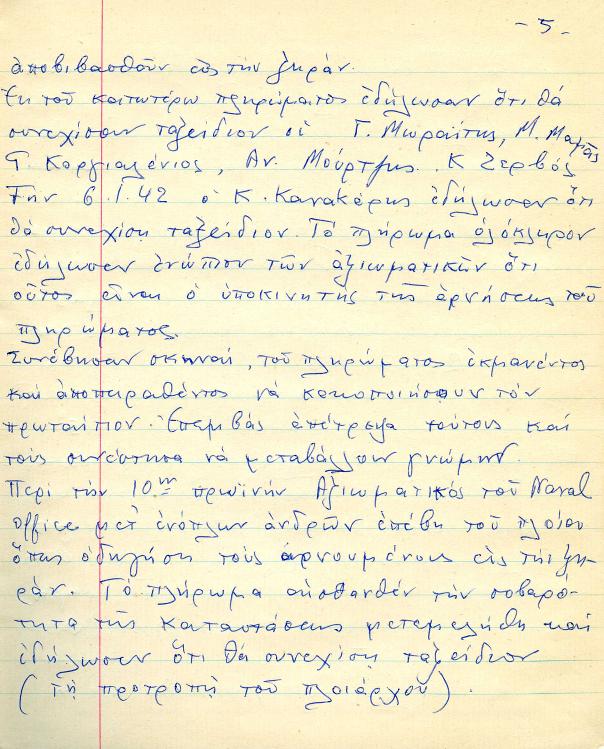 - 5 -
ἀποβιβασθοῦν εἰς τὴν ξηράν.
Ἐκ τοῦ κατωτέρω πληρώματος ἐδήλωσαν ὅτι θά
συνεχίσουν ταξείδιον οἱ Γ. Μωραΐτης, Μ. Μαμᾶς
Γ. Κοργιαλένιος, Αν. Μούρτζης. Κ Ζερβός
Τήν 6.1.42 ὁ Κ. Κανακάρης ἐδήλωσεν ὅτι
θά συνεχίση ταξείδιον. Τό πλήρωμα ὁλόκληρον
ἐδήλωσεν ἐνώπιον τῶν ἀξιωματικῶν ὅτι
οὗτος εἶναι ὁ ὑποκινητής τῆς ἀρνήσεως τοῦ
πληρώματος.
Συνέβησαν σκηναί, τοῦ πληρώματος ἐκμανέντος
καί ἀποπειραθέντος νά κακοποιήσουν τόν
πρωταίτιον. Ἐπεμβάς ἀπέτρεψα τούτους καί
τούς συνέστησα νά μεταβάλλουν γνώμην.
Περί τήν 10ην πρωϊνήν Ἀξιωματικός τοῦ Naval
office μετ' ἐνόπλων ἀνδρῶν ἐπέβη τοῦ πλοίου
ὅπως ὁδηγήση τούς ἀρνουμένους εἰς τήν ξη-
ράν. Τό πλήρωμα αἰσθανθέν τήν σοβαρό-
τητα τῆς καταστάσεως μετεμελήθη καί
ἐδήλωσεν ὅτι θά συνεχίση ταξείδιον
(τῇ προτροπῇ τοῦ πλοιάρχου).